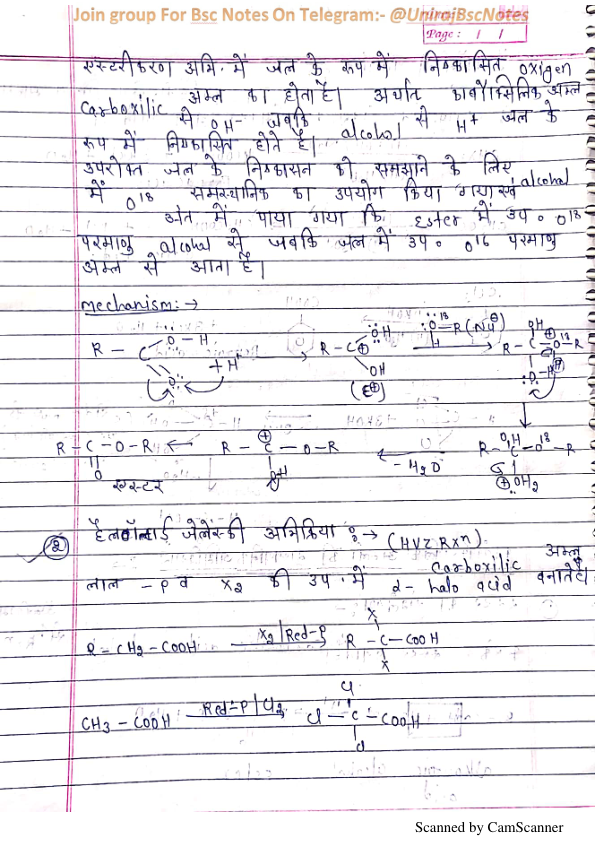 Join group For Bsc Notes On Telegram:- @UnirajBscNotes
Page: / /
एस्टरीकरण अभि. में जल के रूप में निष्कासित oxigen
carboxilic अम्ल का होता है। अर्थात कार्बोक्सिलिक अम्ल
से OH⁻ जबकि alcohol से H⁺ जल के
रूप में निष्कासित होते है।
उपरोक्त जल के निष्कासन को समझाने के लिए alcohol
में O¹⁸ समस्थानिक का उपयोग किया गया एवं
अंत में पाया गया कि Ester में उप० O¹⁸
परमाणु alcohol से जबकि जल में उप० O¹⁶ परमाणु
अम्ल से आता है।
Mechanism:→
R – C O – H O + H⁺ → R – C⊕ OH OH (E⊕) O¹⁸–R (Nu) H → R – C – O¹⁸–R OH O–H
R – C – O – R O ← R – C⊕ – O – R OH ← – H₂O R – C – O¹⁸ – R OH ⊕OH₂
एस्टर
② हैलवॉलार्ड जेलेंस्की अभिक्रिया :→ (HVZ Rxⁿ)
लाल – P व X₂ की उप. में carboxilic अम्ल
α- halo acid बनाते है।
R – CH₂ – COOH X₂/Red-P → R – C – COOH X X
CH₃ – COOH Red-P/Cl₂ → Cl – C – COOH Cl Cl
Scanned by CamScanner